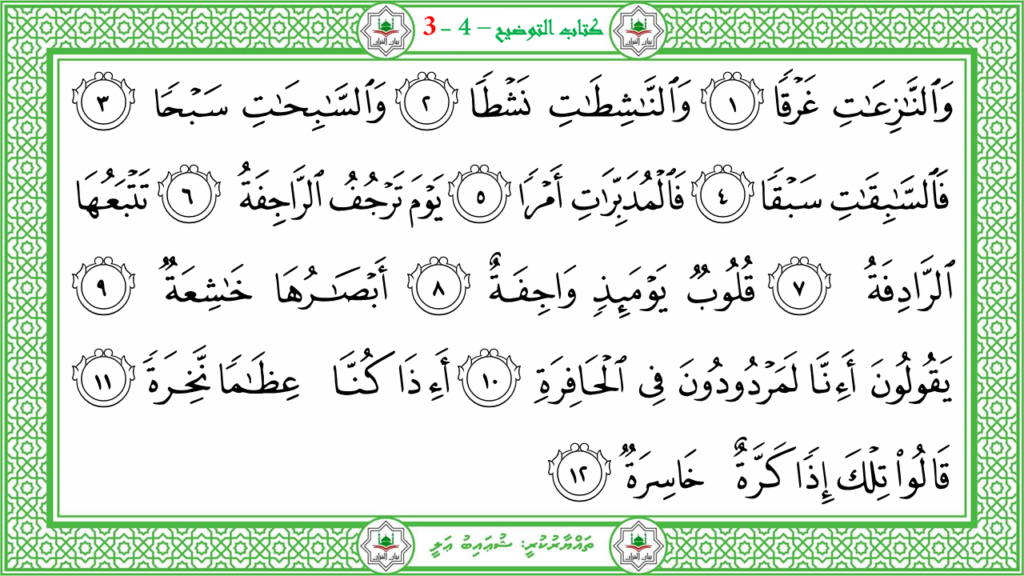 كتاب التوضيح – 4 - 3
وَٱلنَّـٰزِعَـٰتِ غَرۡقٗا ١ وَٱلنَّـٰشِطَـٰتِ نَشۡطٗا ٢ وَٱلسَّـٰبِحَـٰتِ سَبۡحٗا ٣
فَٱلسَّـٰبِقَـٰتِ سَبۡقٗا ٤ فَٱلۡمُدَبِّرَٰتِ أَمۡرٗا ٥ يَوۡمَ تَرۡجُفُ ٱلرَّاجِفَةُ ٦ تَتۡبَعُهَا
ٱلرَّادِفَةُ ٧ قُلُوبٞ يَوۡمَئِذٖ وَاجِفَةٌ ٨ أَبۡصَـٰرُهَا خَـٰشِعَةٞ ٩
يَقُولُونَ أَءِنَّا لَمَرۡدُودُونَ فِي ٱلۡحَافِرَةِ ١٠ أَءِذَا كُنَّا عِظَـٰمٗا نَّخِرَةٗ ١١
قَالُواْ تِلۡكَ إِذٗا كَرَّةٌ خَاسِرَةٞ ١٢
ތައްޔާރުކުރީ: ޝުޢައިބު ޢަލީ